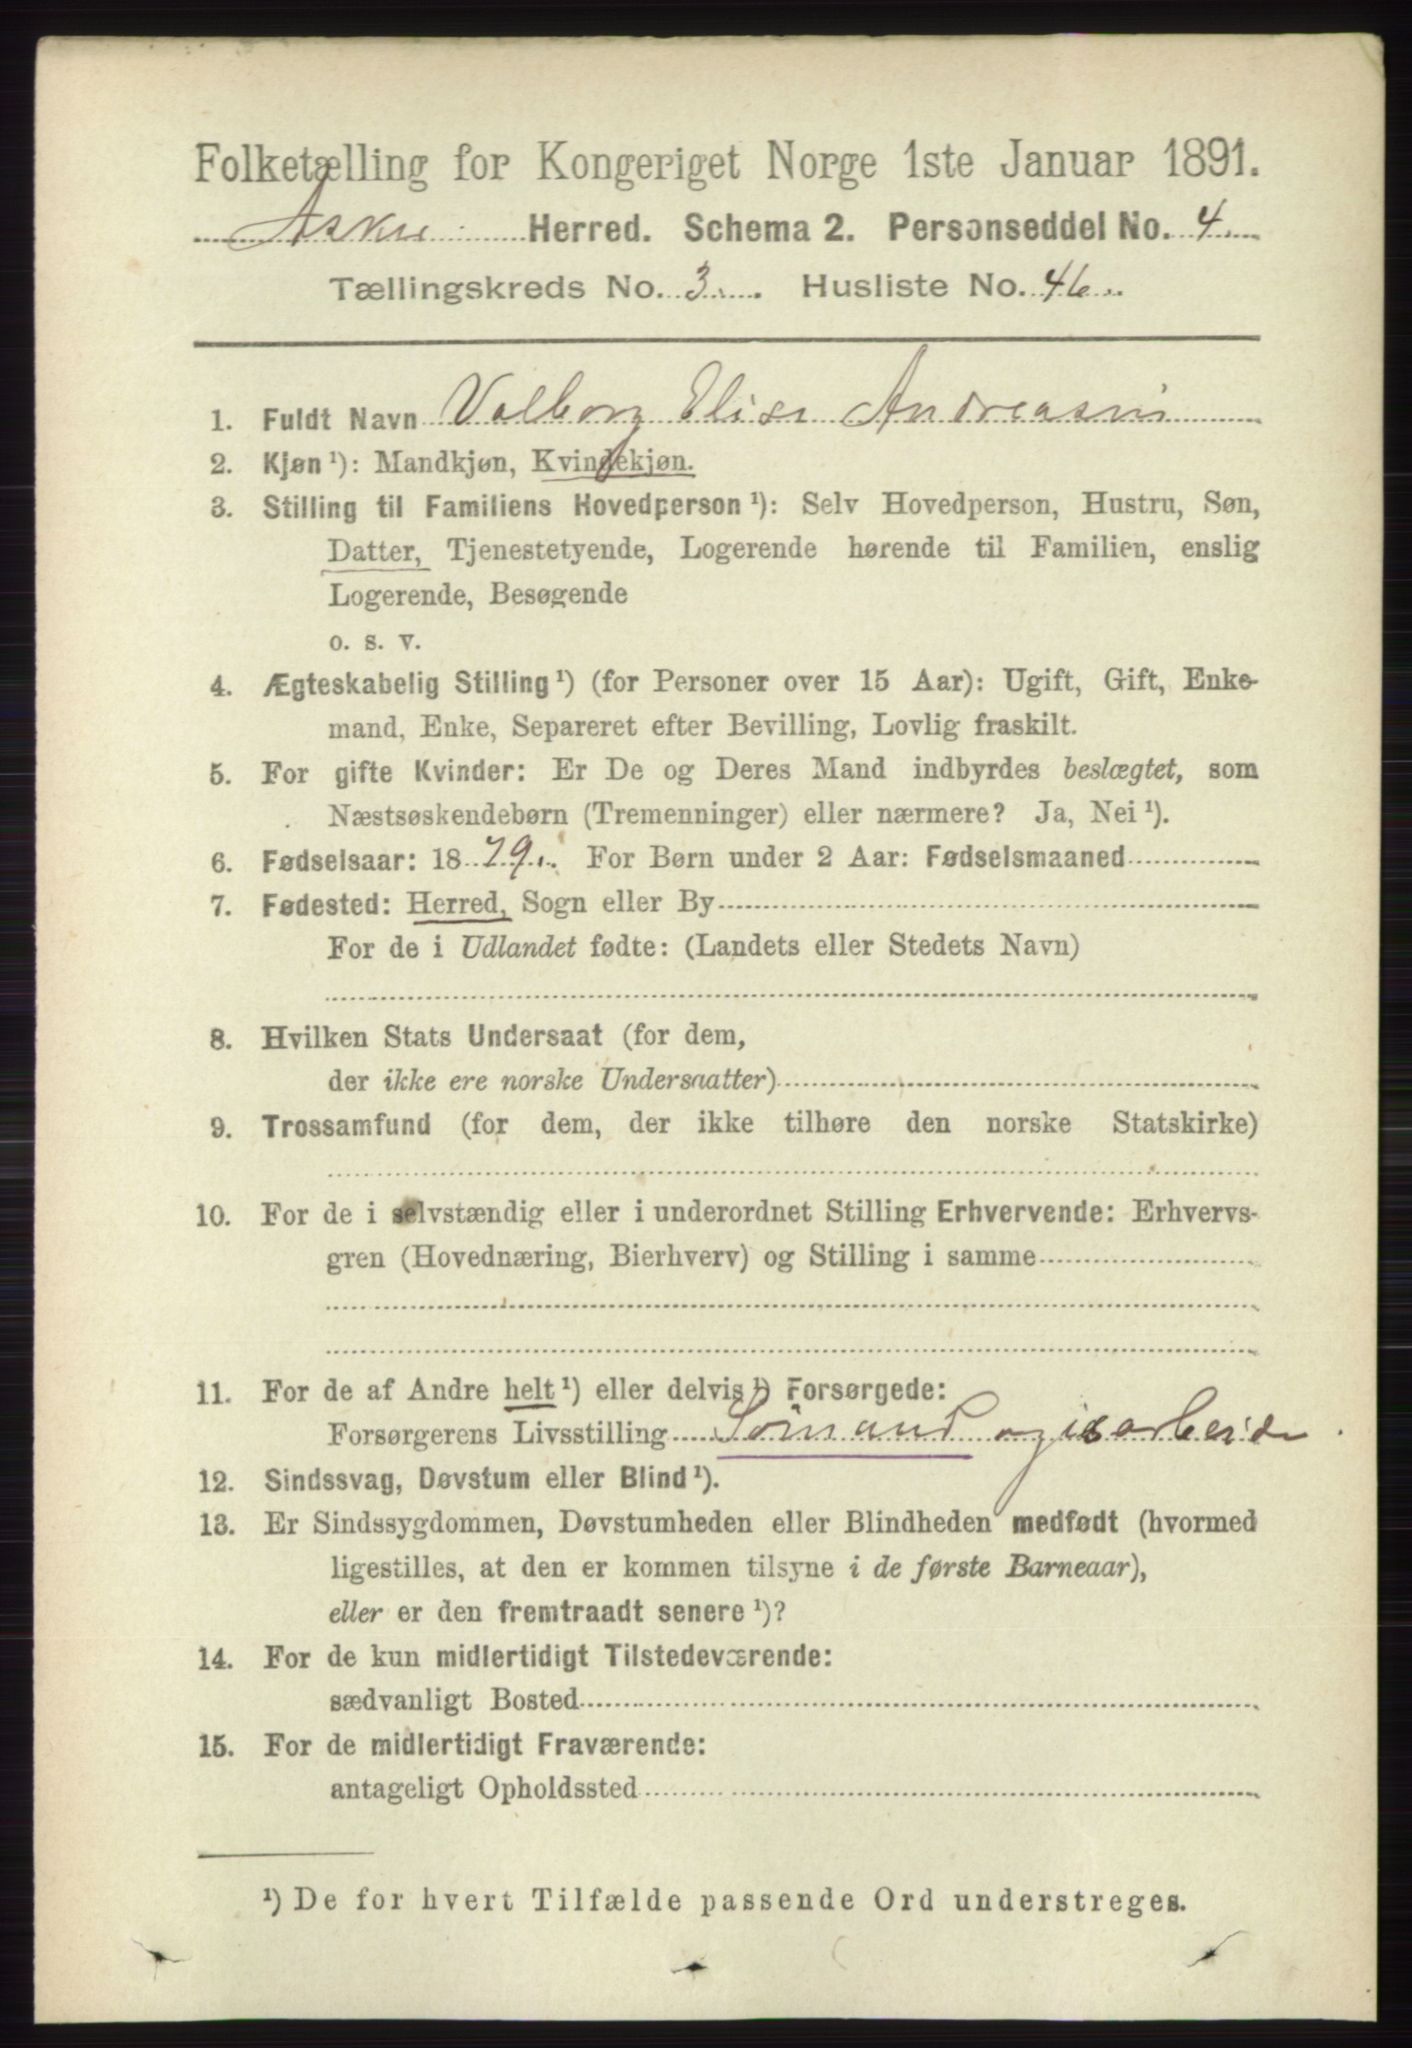 Folketælling for Kongeriget Norge 1ste Januar 1891.
Asker Herred. Schema 2. Personseddel No. 4.
Tællingskreds No. 3. Husliste No. 46.
1. Fuldt Navn Valborg Elise Andreasen
2. Kjøn ¹): Mandkjøn, Kvindekjøn.
3. Stilling til Familiens Hovedperson ¹): Selv Hovedperson, Hustru, Søn,
Datter, Tjenestetyende, Logerende hørende til Familien, enslig
Logerende, Besøgende
o. s. v.
4. Ægteskabelig Stilling ¹) (for Personer over 15 Aar): Ugift, Gift, Enke-
mand, Enke, Separeret efter Bevilling, Lovlig fraskilt.
5. For gifte Kvinder: Er De og Deres Mand indbyrdes beslægtet, som
Næstsøskendebørn (Tremenninger) eller nærmere? Ja, Nei ¹).
6. Fødselsaar: 1879. For Børn under 2 Aar: Fødselsmaaned
7. Fødested: Herred, Sogn eller By
For de i Udlandet fødte: (Landets eller Stedets Navn)
8. Hvilken Stats Undersaat (for dem,
der ikke ere norske Undersaatter)
9. Trossamfund (for dem, der ikke tilhøre den norske Statskirke)
10. For de i selvstændig eller i underordnet Stilling Erhvervende: Erhvervs-
gren (Hovednæring, Bierhverv) og Stilling i samme
11. For de af Andre helt ¹) eller delvis ¹) Forsørgede:
Forsørgerens Livsstilling Sömand og isarbeide
12. Sindssvag, Døvstum eller Blind ¹).
13. Er Sindssygdommen, Døvstumheden eller Blindheden medfødt (hvormed
ligestilles, at den er kommen tilsyne i de første Barneaar),
eller er den fremtraadt senere ¹)?
14. For de kun midlertidigt Tilstedeværende:
sædvanligt Bosted
15. For de midlertidigt Fraværende:
antageligt Opholdssted
¹) De for hvert Tilfælde passende Ord understreges.